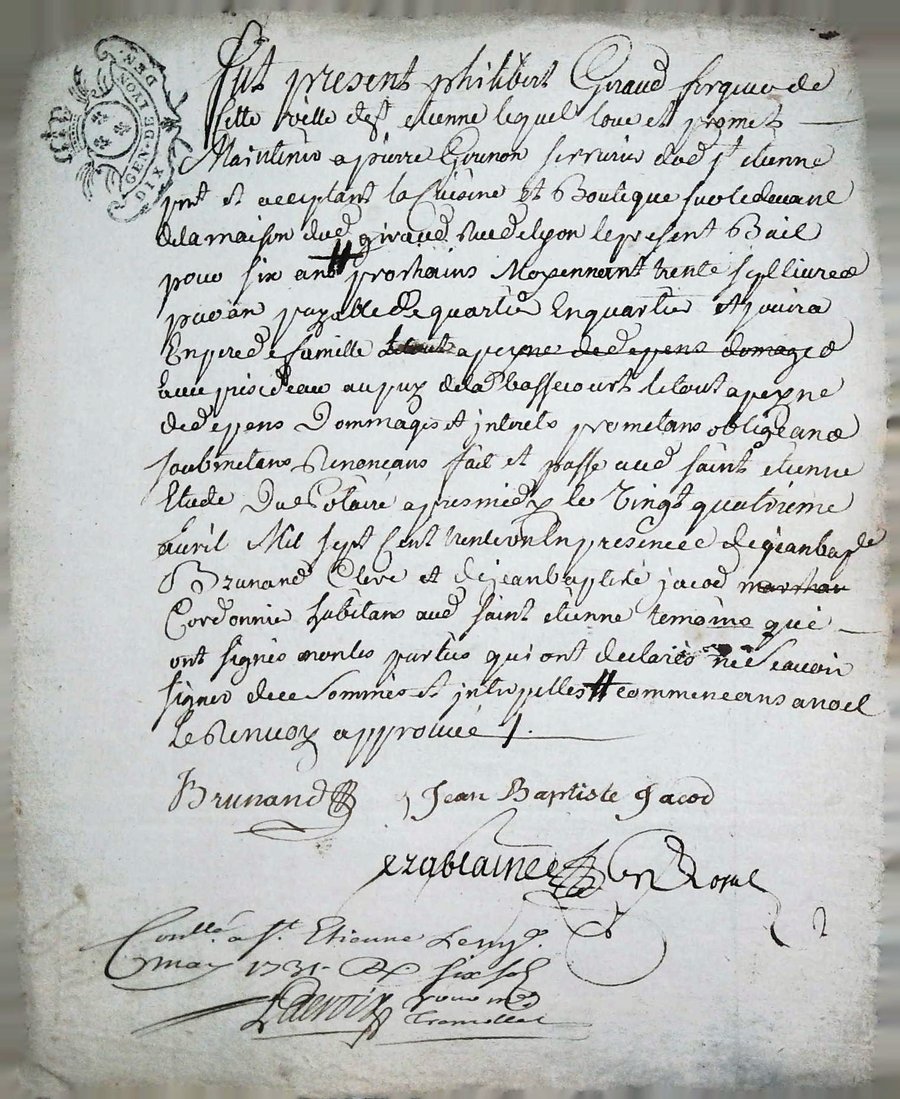 GEN·DE LYON
DIX DEN·
Fut present philibert Giraud forgeur de
Cette ville de st etienne lequel loue et promet
Maintenir a pierre Grunon serrurier dud st etienne
pnt et acceptant la Cuisine et Boutique sur le devant
dela maison dud giraud Rue de lyon le present Bail
pour six ans # prochains Moyennant trente sept livres
par an payable de quartier En quartier et jouira
En pere de famille le tout a peyne de depens domages
Eau puis deau au puy dela Bassecourt le tout a peyne
de depens Dommages et interets prometans obligeans
soubmetans Renoncans fait et passe aud saint etienne
Etude Du Notaire apres midy le Vingt quatrieme
avril Mil sept Cent trente un En presence de jean bapte
Brunand Clerc et de jean baptiste jacod marchan
Cordonnie habitans aud saint etienne temoins qui
ont signés non les parties qui ont declarés ne scavoir
signer de ce sommés et interpelles # commencans a noel
Le Renvoy approuvé /.
Brunand Jean Baptiste Jacod
Controllé a St. Etienne le
may 1731. R six sols
Lacroix pour mr